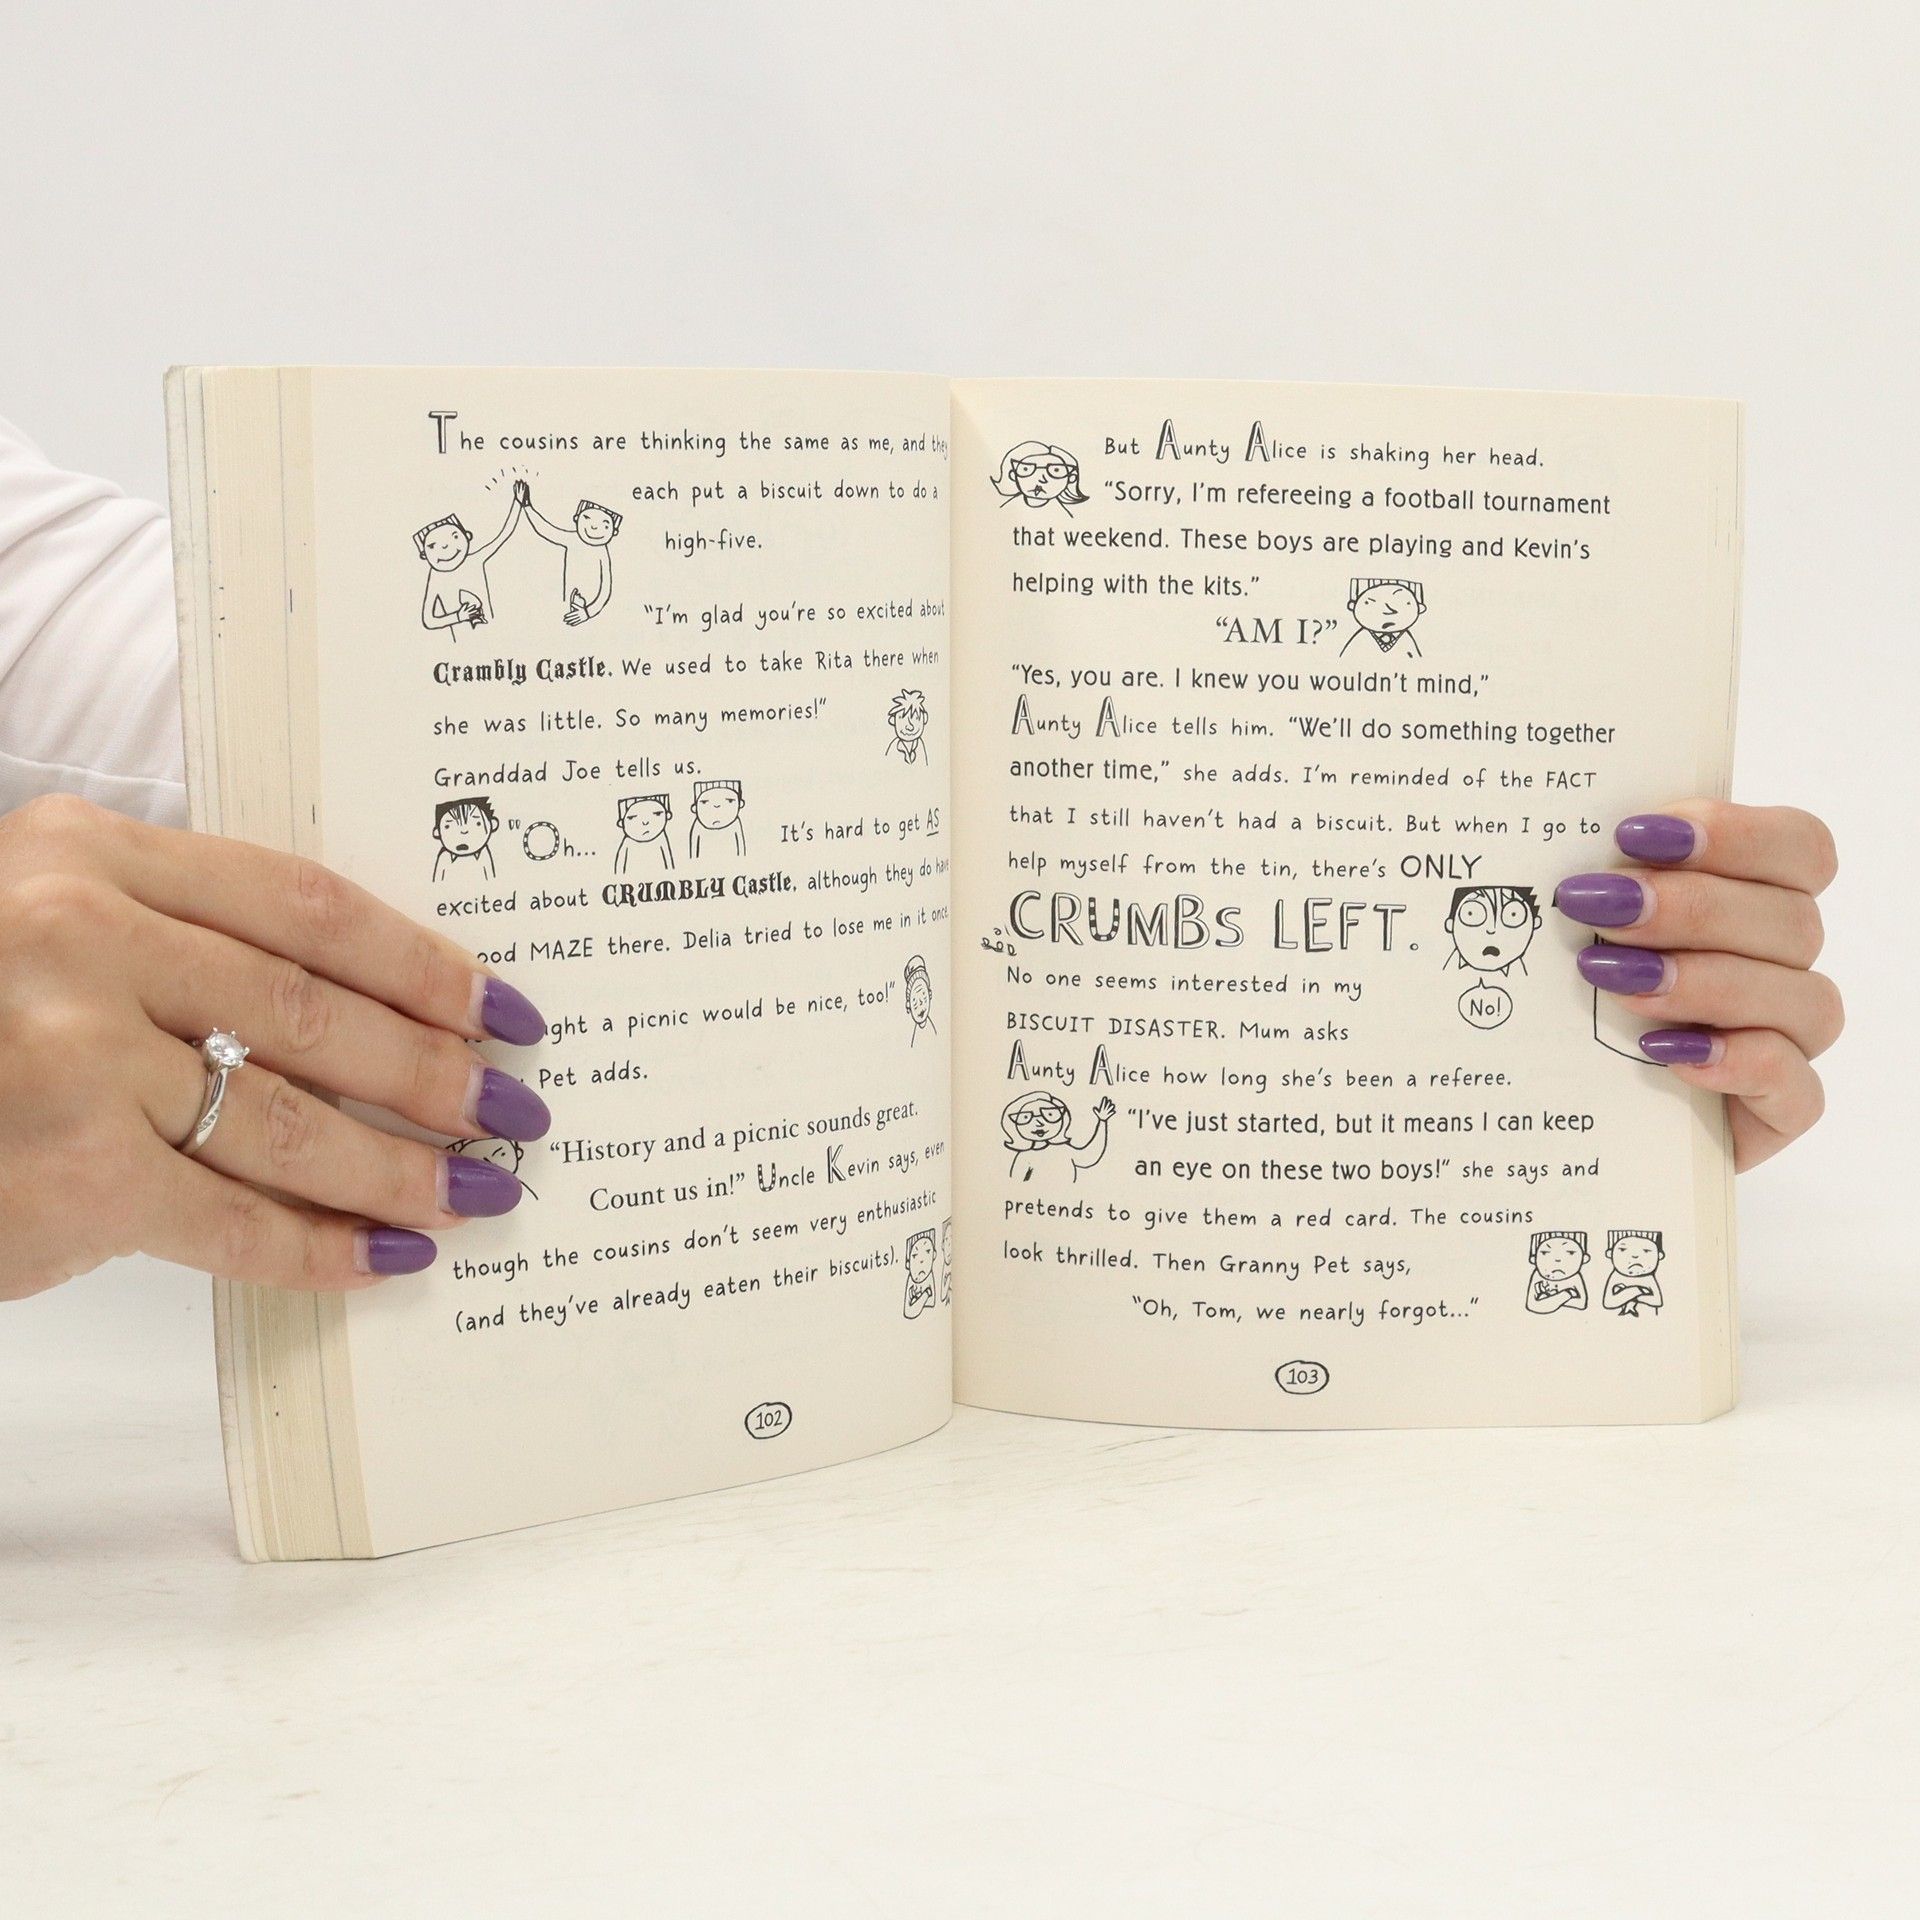 The cousins are thinking the same as me, and they
each put a biscuit down to do a
high-five.
"I'm glad you're so excited about
Crambly Castle. We used to take Rita there when
she was little. So many memories!"
Granddad Joe tells us.
"Oh... It's hard to get AS
excited about CRUMBLY Castle, although they do have
MAZE there. Delia tried to lose me in it once
a picnic would be nice, too!"
Pet adds.
"History and a picnic sounds great.
Count us in!" Uncle Kevin says, even
though the cousins don't seem very enthusiastic
(and they've already eaten their biscuits).
102
But Aunty Alice is shaking her head.
"Sorry, I'm refereeing a football tournament
that weekend. These boys are playing and Kevin's
helping with the kits."
"AM I?"
"Yes, you are. I knew you wouldn't mind,"
Aunty Alice tells him. "We'll do something together
another time," she adds. I'm reminded of the FACT
that I still haven't had a biscuit. But when I go to
help myself from the tin, there's ONLY
CRUMBS LEFT.
No one seems interested in my
No!
BISCUIT DISASTER. Mum asks
Aunty Alice how long she's been a referee.
"I've just started, but it means I can keep
an eye on these two boys!" she says and
pretends to give them a red card. The cousins
look thrilled. Then Granny Pet says,
"Oh, Tom, we nearly forgot..."
103